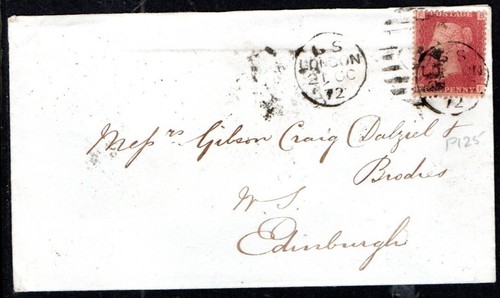 POSTAGE
PENNY
S
LONDON
OC
72
S
72
Mess rs Gibson Craig Dalziel &
P125
Brodies
W. S.
Edinburgh